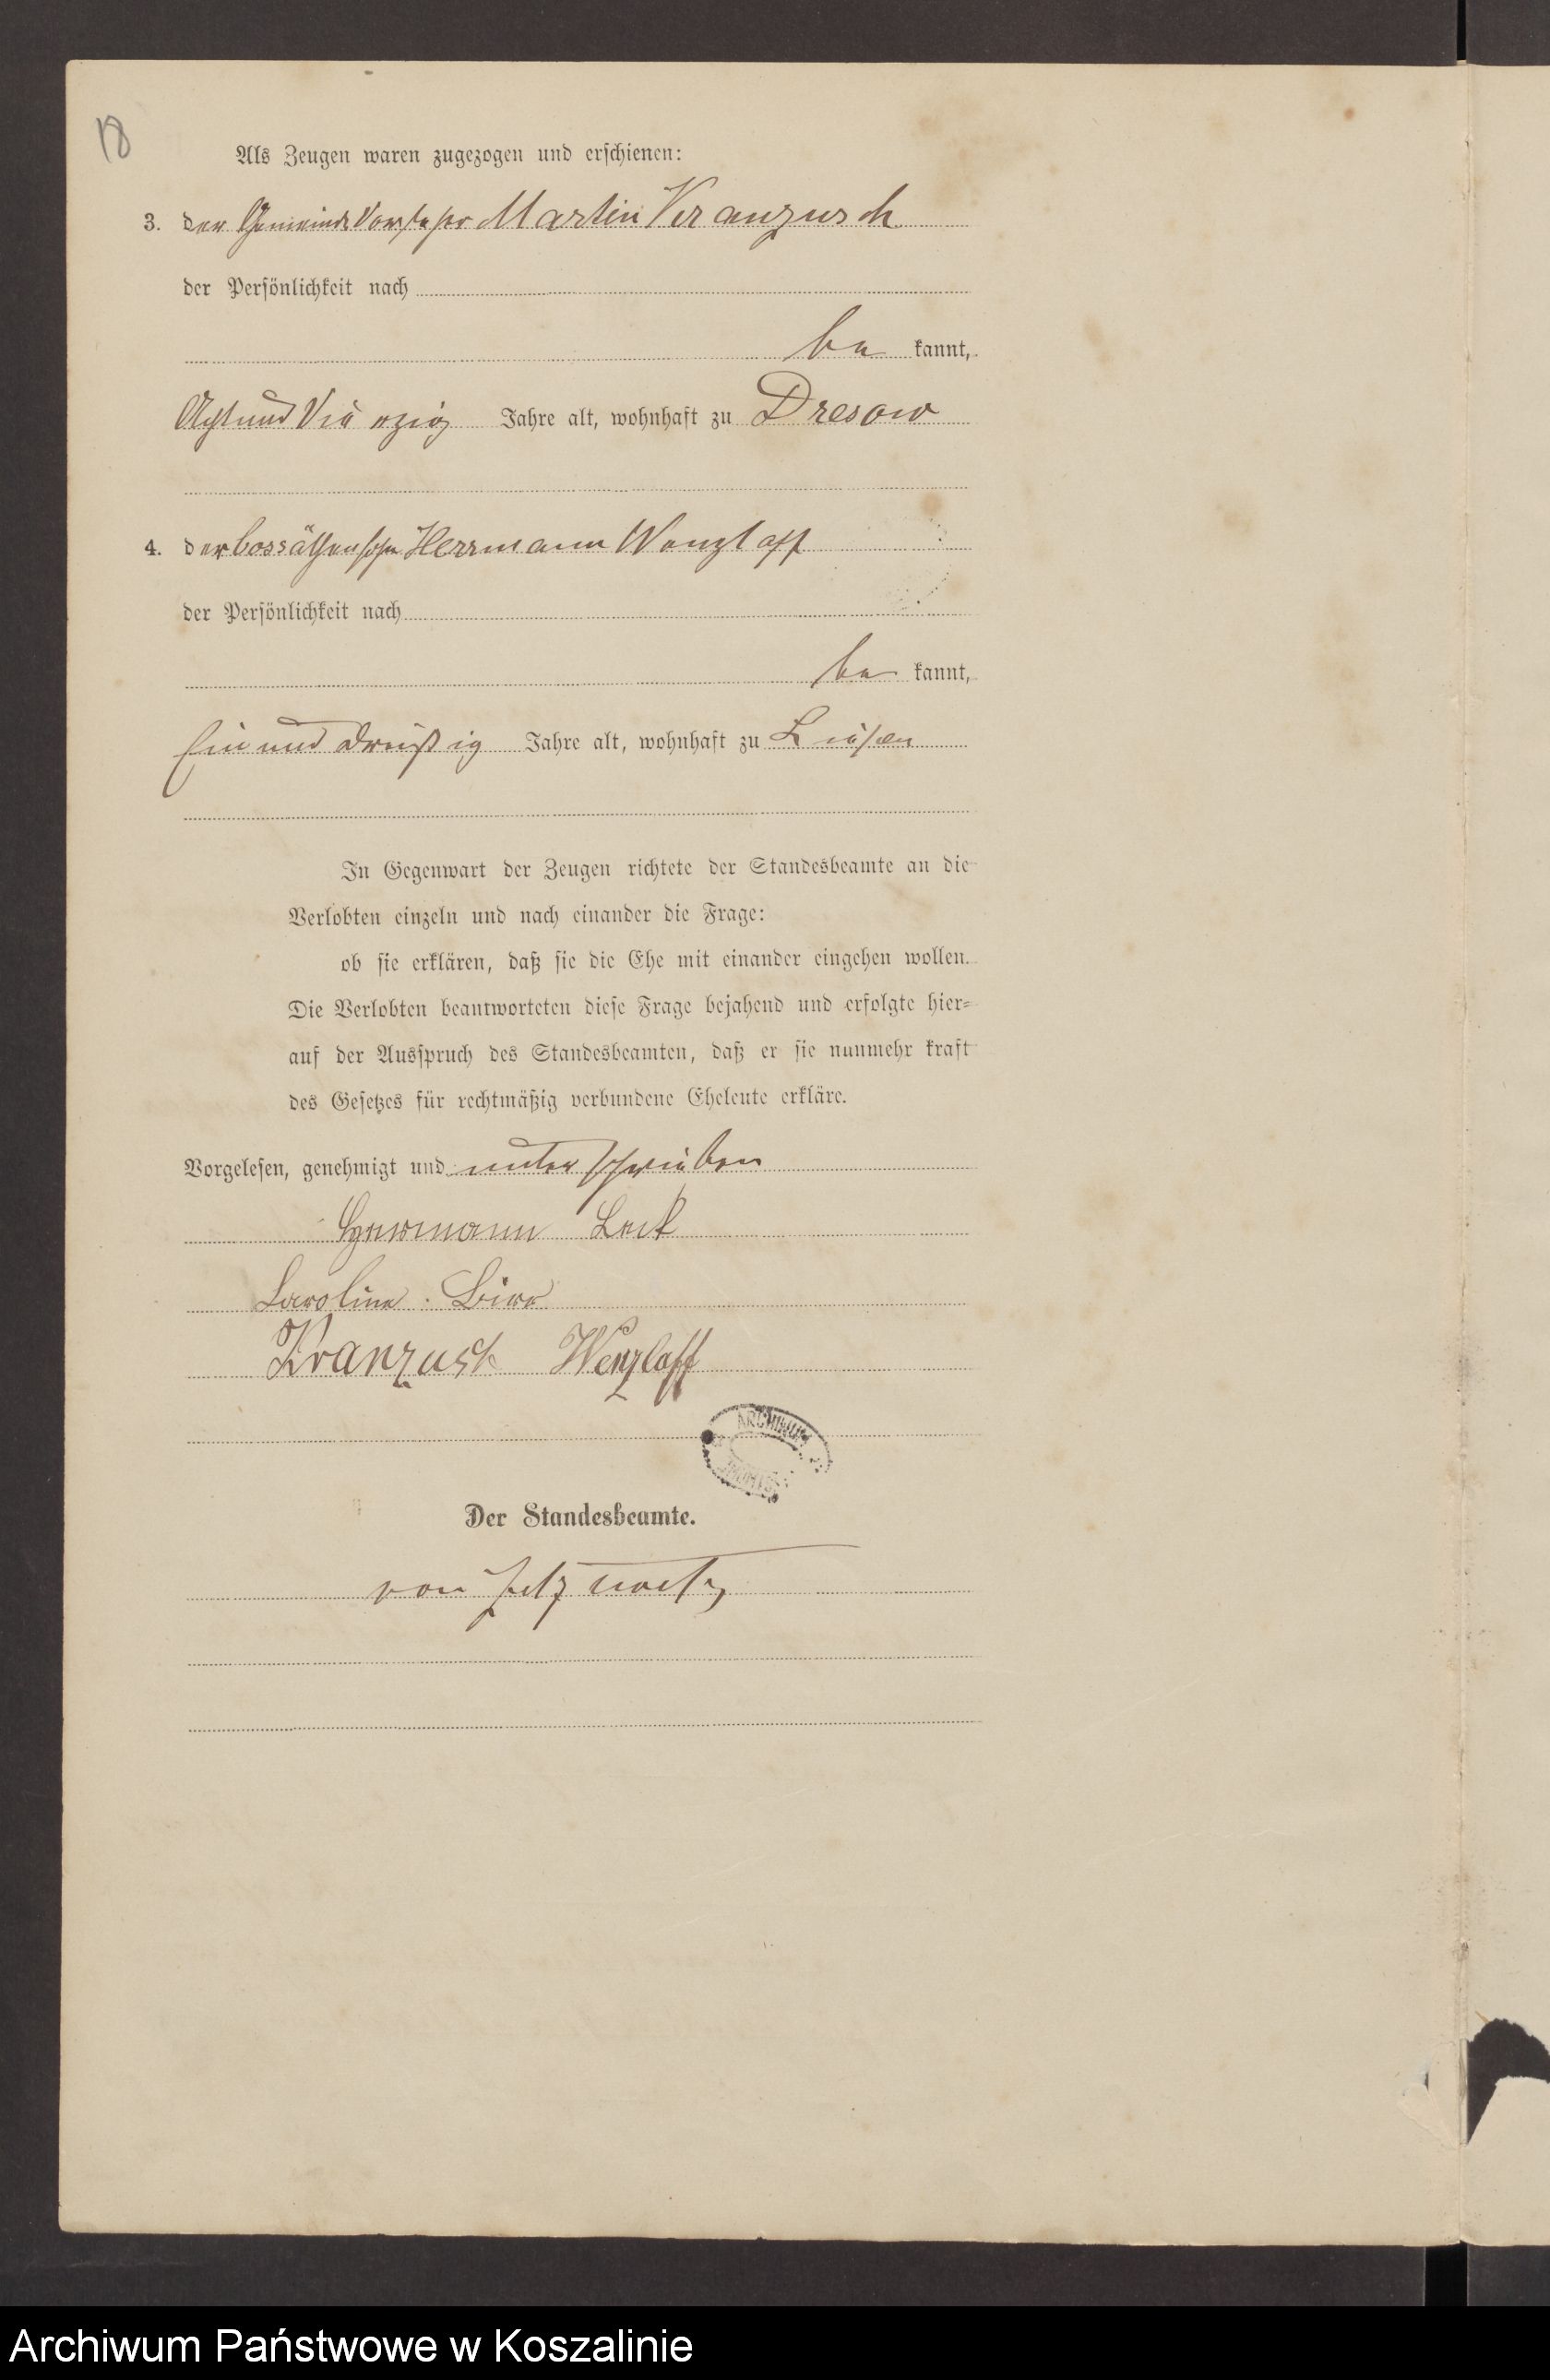 18
Als Zeugen waren zugezogen und erschienen:
3. der Gemeinde Vorsteher Martin Kranzusch
der Persönlichkeit nach
be kannt,
Acht und Vierzig Jahre alt, wohnhaft zu Dresow
4. der Cossäthensohn Herrmann Wenzlaff
der Persönlichkeit nach
be kannt,
Ein und dreißig Jahre alt, wohnhaft zu
In Gegenwart der Zeugen richtete der Standesbeamte an die
Verlobten einzeln und nach einander die Frage:
ob sie erklären, daß sie die Ehe mit einander eingehen wollen.
Die Verlobten beantworteten diese Frage bejahend und erfolgte hier-
auf der Ausspruch des Standesbeamten, daß er sie nunmehr kraft
des Gesetzes für rechtmäßig verbundene Eheleute erkläre.
Vorgelesen, genehmigt und unterschrieben
Herrmann
Caroline
Kranzusch Wenzlaff
ARCHIWUM
Der Standesbeamte.
von
Archiwum Państwowe w Koszalinie